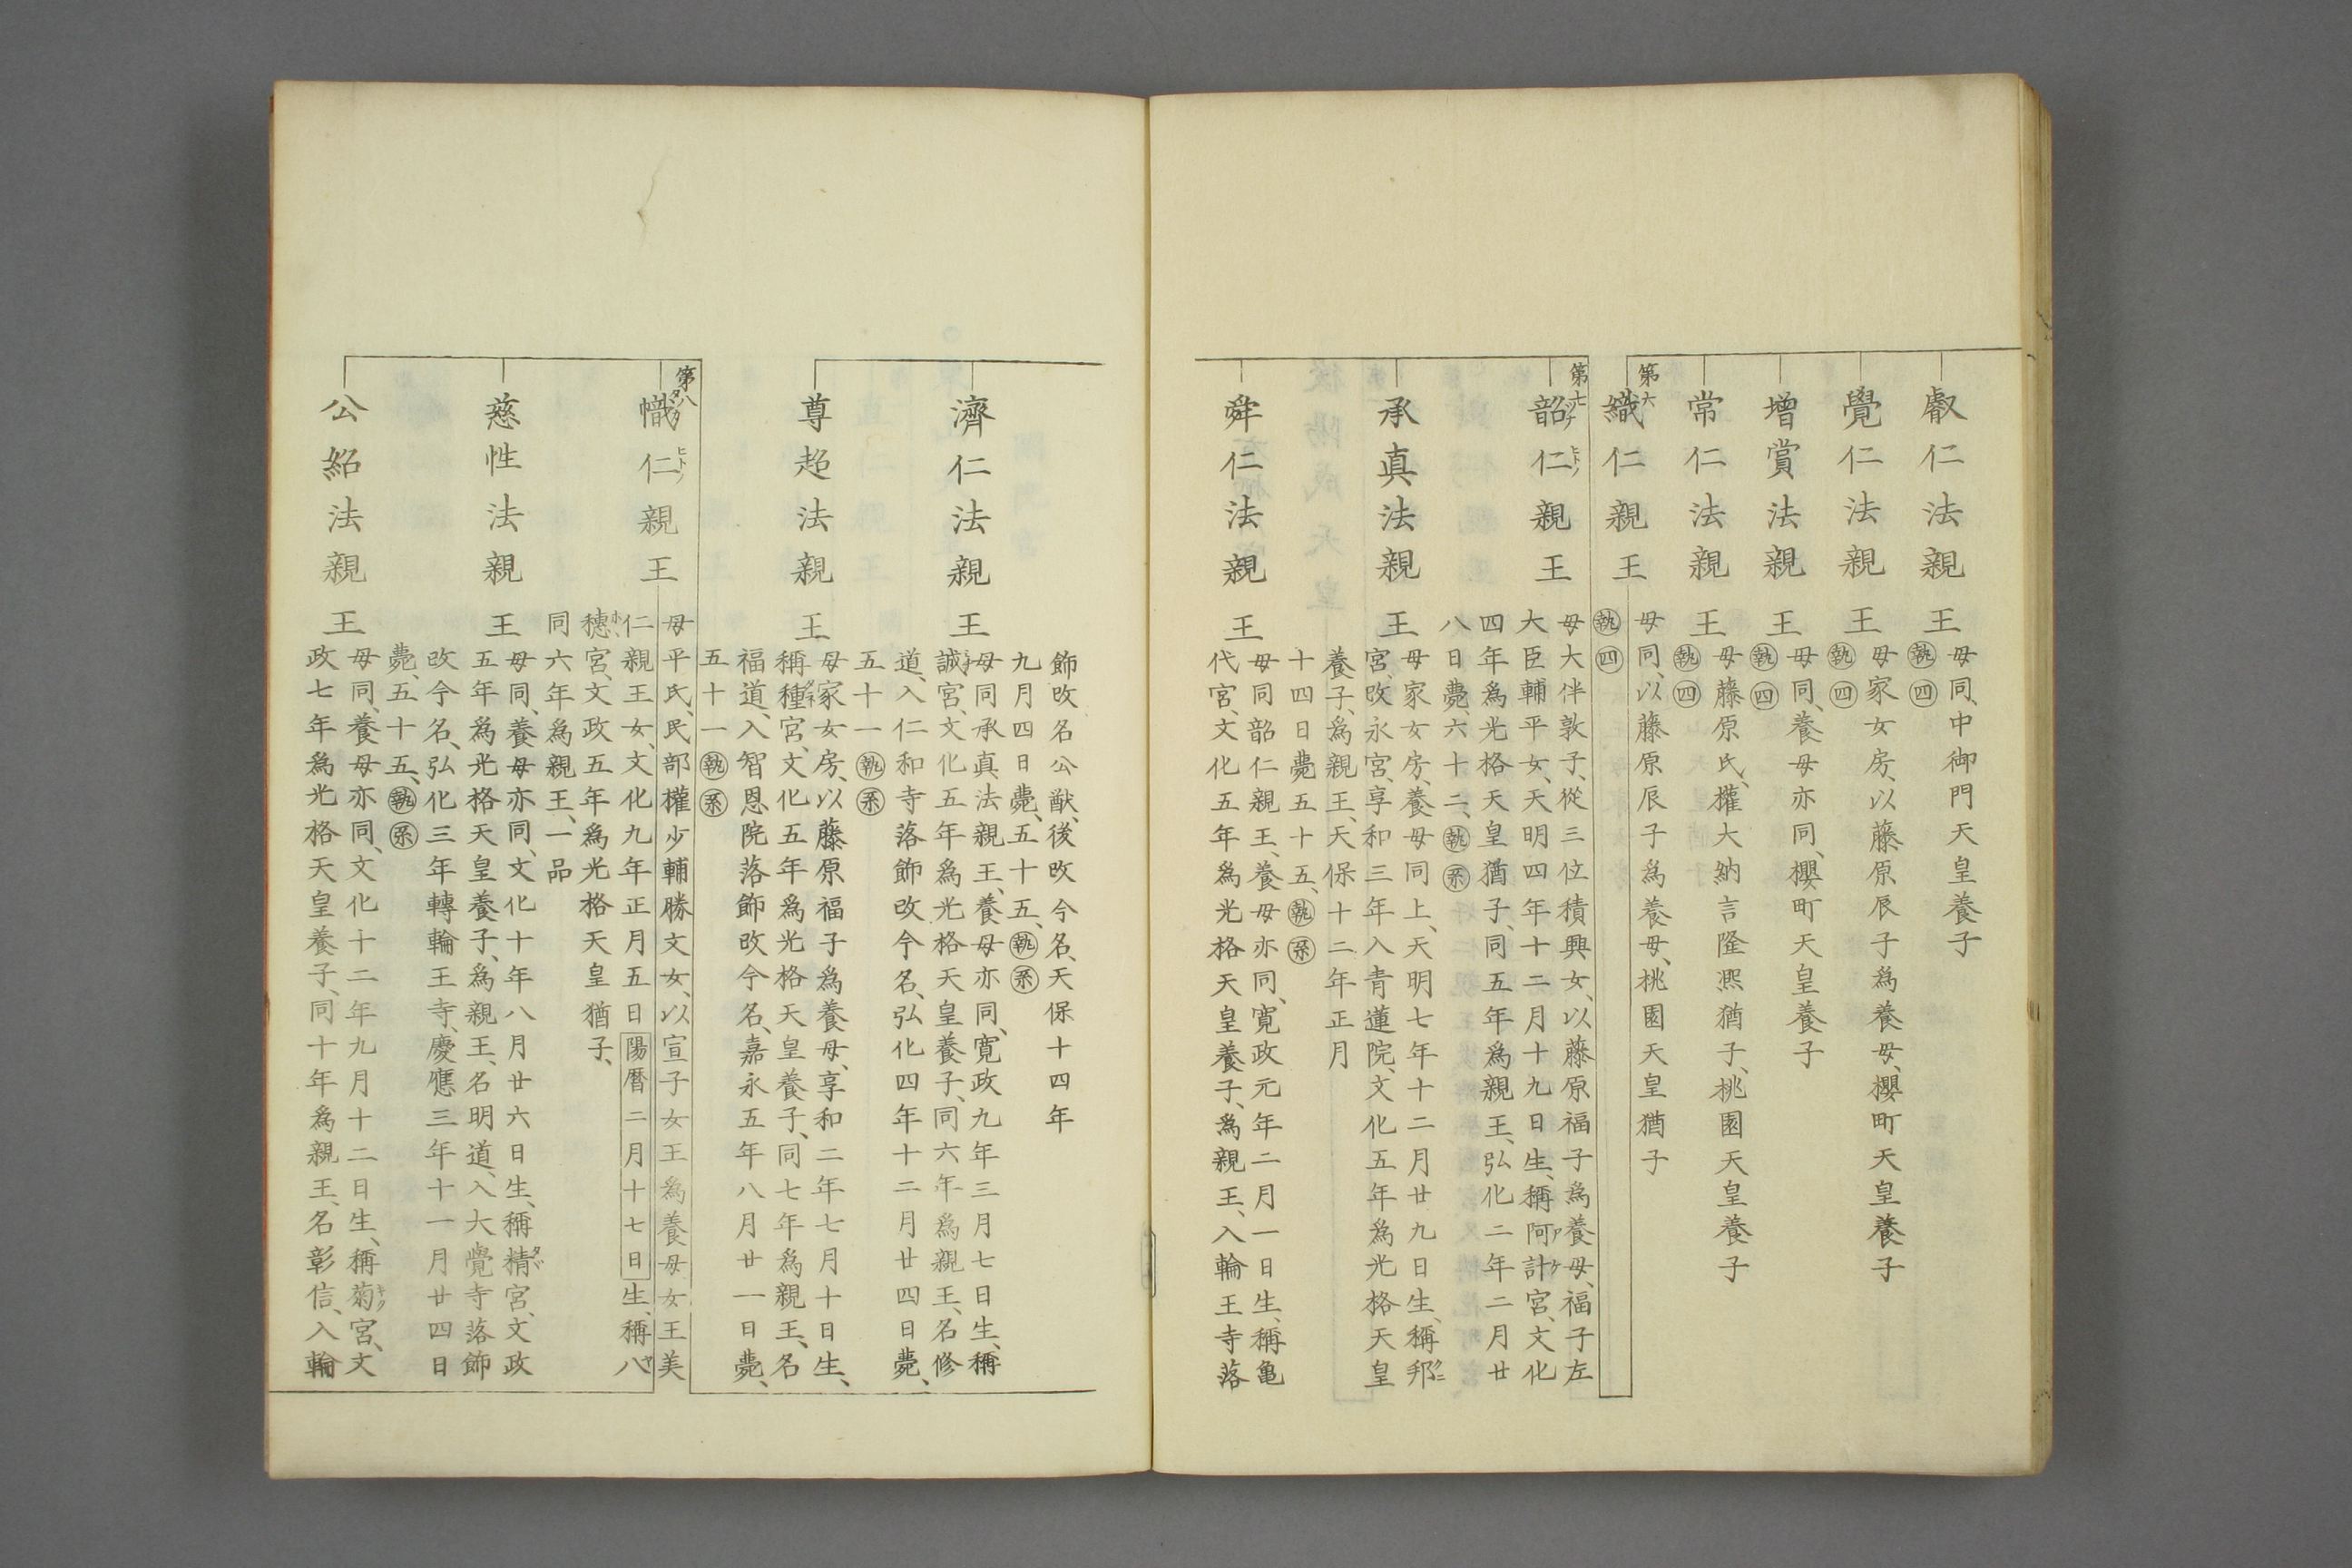 叡仁法親王
母同、中御門天皇養子
㊥執㊃
覺仁法親王
母家女房、以藤原辰子為養母、櫻町天皇養子
執四
增賞法親王
母同、養母亦同、櫻町天皇養子
執四
常仁法親王
母藤原氏、權大納言隆凞猶子、桃園天皇養子
執四
第六
織仁親王
母同、以藤原辰子為養母、桃園天皇猶子
執四
第七
韶仁親王
ツナ ヒト
母大伴敦子、從三位積興女、以藤原福子為養母、福子左
大臣輔平女、天明四年十二月十九日生、稱阿計宮、文化
四年為光格天皇猶子、同五年為親王、弘化二年二月廿
八日薨、六十二、執系
承真法親王
母家女房、養母同上、天明七年十二月廿九日生、稱邦
宮、改永宮、享和三年入青蓮院、文化五年為光格天皇
養子、為親王、天保十二年正月
十四日薨五十五、執系
舜仁法親王
母同韶仁親王、養母亦同、寛政元年二月一日生、稱亀
代宮、文化五年為光格天皇養子、為親王、入輪王寺落
飾改名公猷、後改今名、天保十四年
九月四日薨、五十五、執系
濟仁法親王
母同承真法親王、養母亦同、寛政九年三月七日生、稱
誠宮、文化五年為光格天皇養子、同六年為親王、名修
道、入仁和寺落飾改今名、弘化四年十二月廿四日薨、
五十一執系
尊超法親王
母家女房、以藤原福子為養母、享和二年七月十日生、
稱種宮、文化五年為光格天皇養子、同七年為親王、名
福道、入智恩院落飾改今名、嘉永五年八月廿一日薨、
五十一執系
第八
幟仁親王
タカ ヒト
母平氏、民部權少輔勝文女、以宣子女王為養母、女王美
仁親王女、文化九年正月五日陽暦二月十七日生、稱八
穗宮、文政五年為光格天皇猶子、
同六年為親王、一品
慈性法親王
母同、養母亦同、文化十年八月廿六日生、稱精宮、文政
五年為光格天皇養子、為親王、名明道、入大覺寺落飾
改今名、弘化三年轉輪王寺、慶應三年十一月廿四日
薨、五十五、執系
公紹法親王
母同、養母亦同、文化十二年九月十二日生、稱菊宮、文
政七年為光格天皇養子、同十年為親王、名彰信、入輪